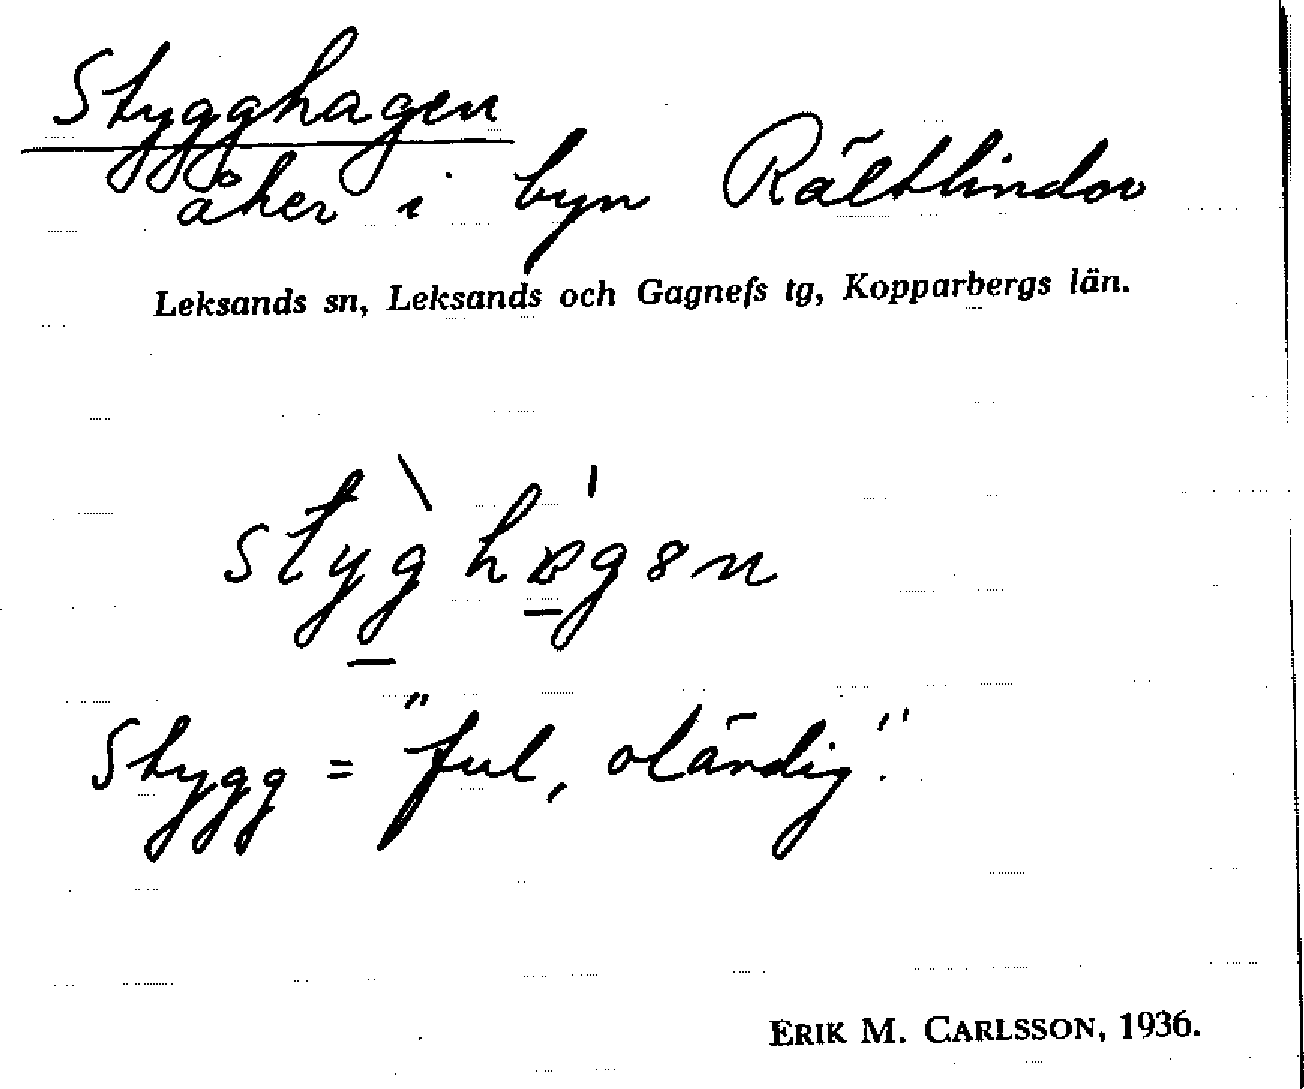 Stygghagen
åker i byn Rältlindor
Leksands sn, Leksands och Gagnefs tg, Kopparbergs län.
Stygg = "ful, oländig".
ERIK M. CARLSSON, 1936.